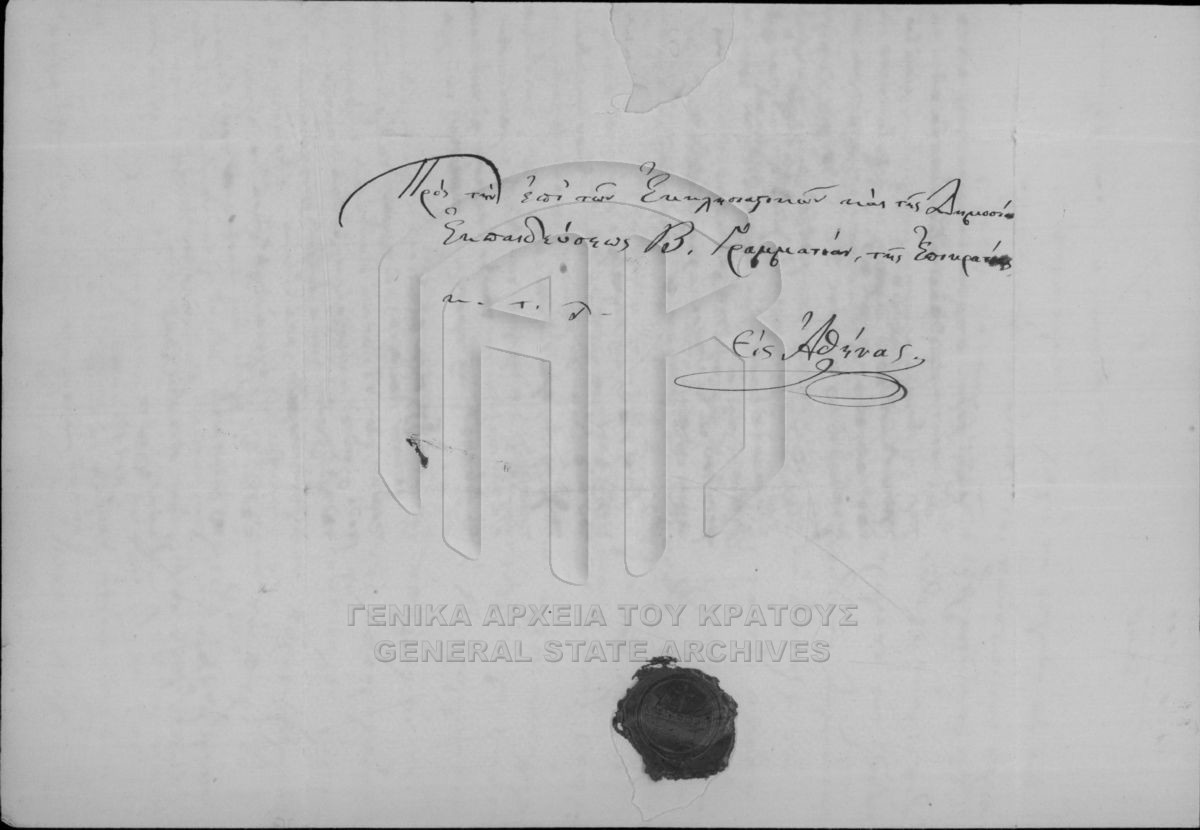 Πρὸς τὴν ἐπὶ τῶν Ἐκκλησιαστικῶν καὶ τῆς Δημοσίο
Ἐκπαιδεύσεως Β. Γραμματείαν, τῆς Ἐπικρατείας
κ. τ. λ.
Εἰς Ἀθήνας.
ΓΕΝΙΚΑ ΑΡΧΕΙΑ ΤΟΥ ΚΡΑΤΟΥΣ
GENERAL STATE ARCHIVES